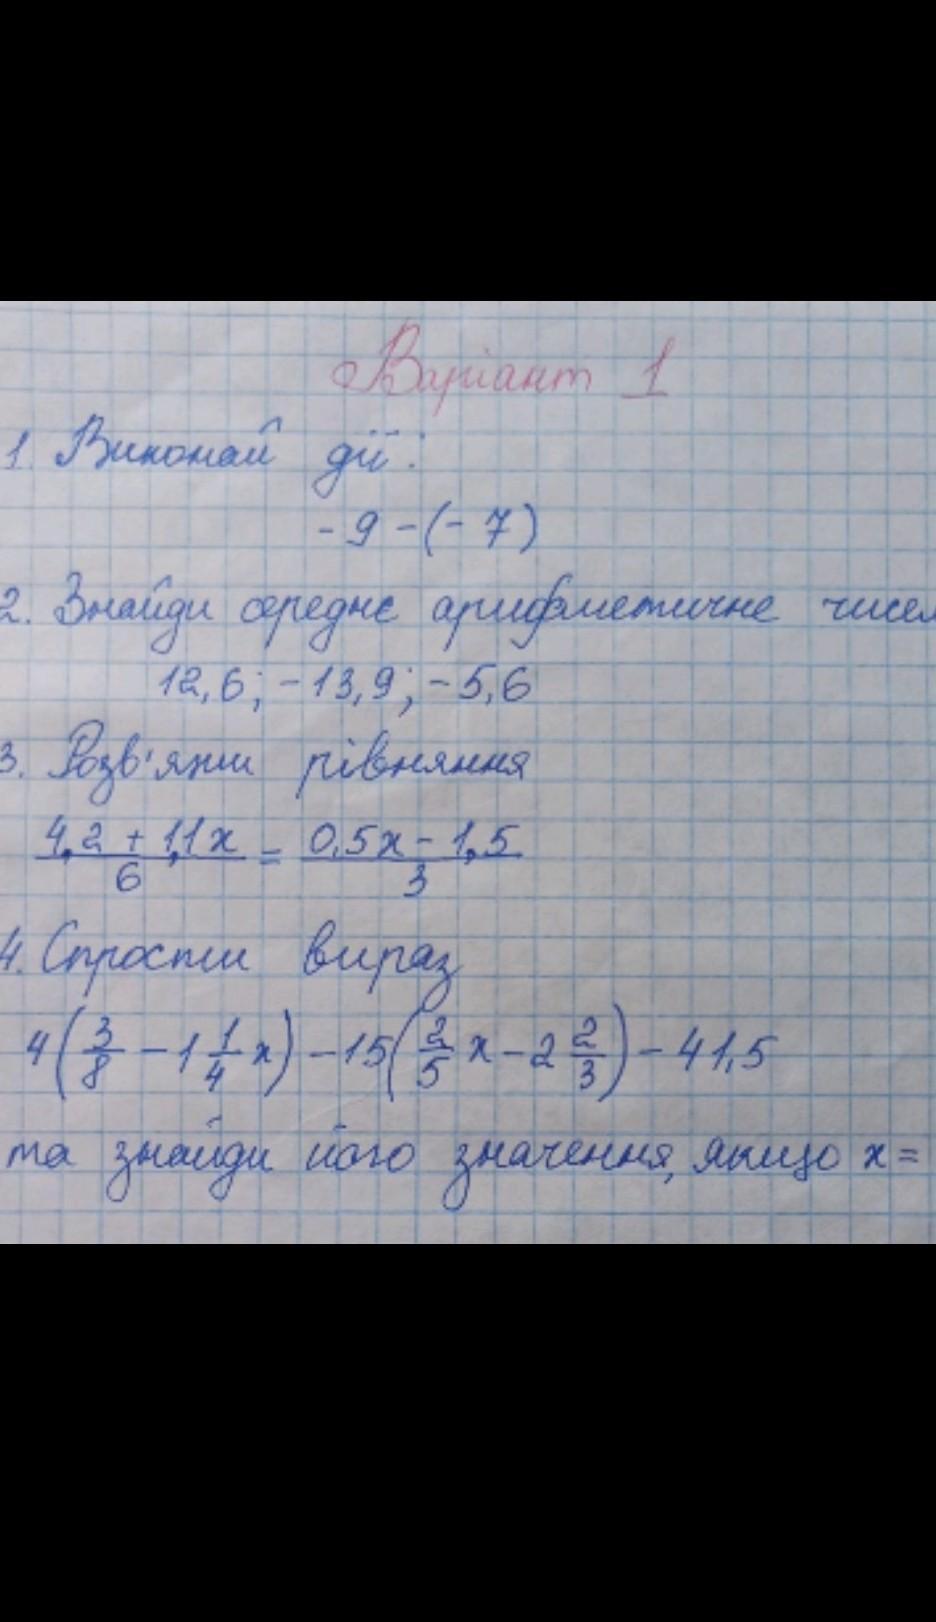 Варіант 1
1. Виконай дії:
-9-(-7)
2. Знайди середнє арифметичне чисел
12,6; -13,9; -5,6
3. Розв'яжи рівняння
4,2 + 1,1x / 6 = 0,5x - 1,5 / 3
4. Спрости вираз
4(3/8 - 1 1/4 x) - 15(2/5 x - 2 2/3) - 41,5
та знайди його значення, якщо x =